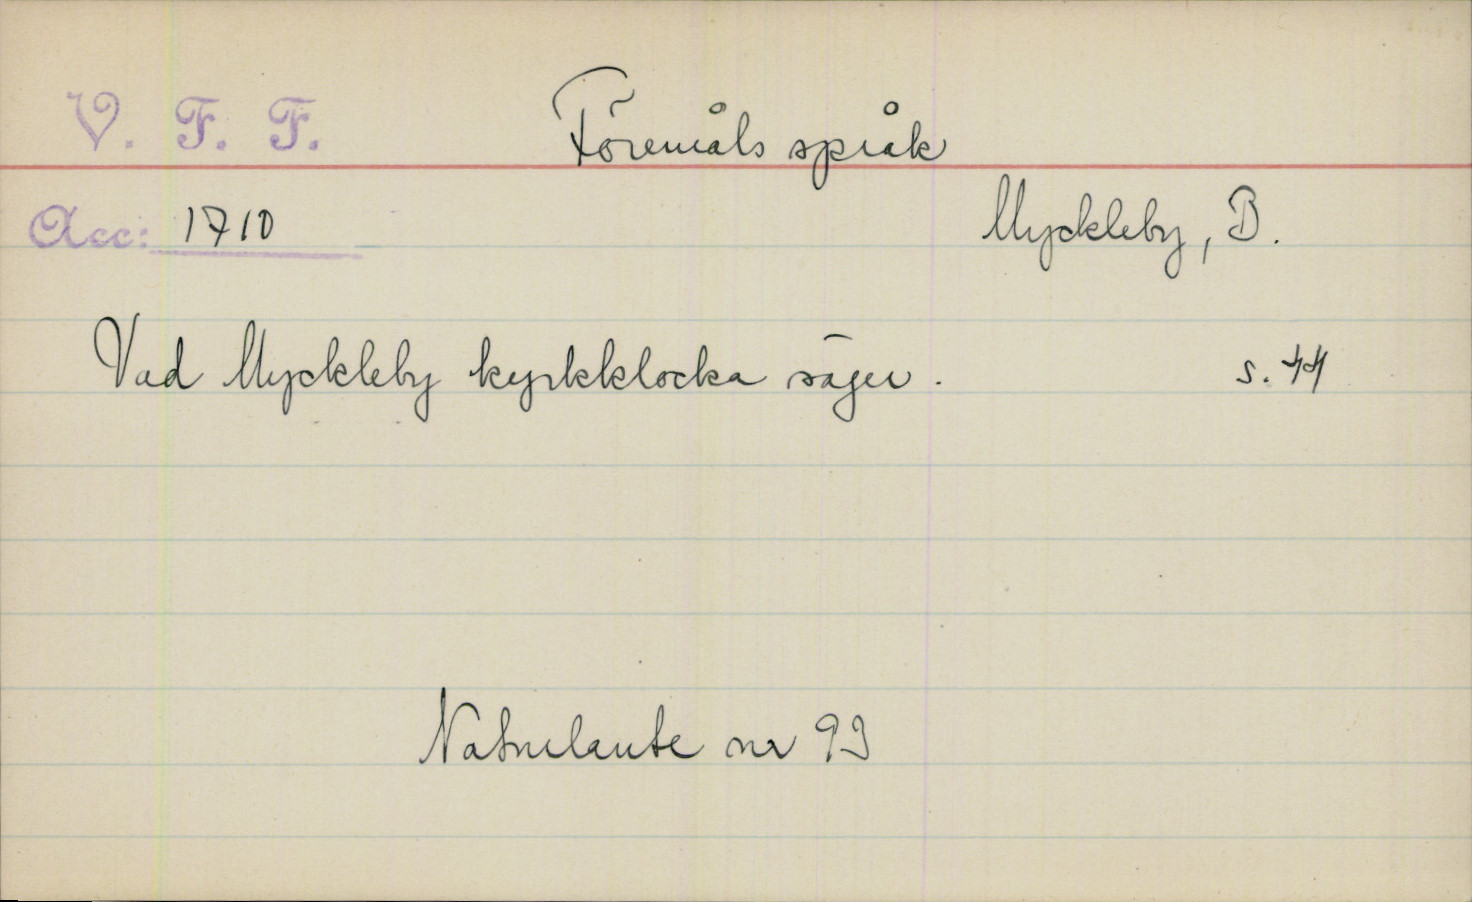 V. F. F. Föremåls språk
Acc: 1710 Myckleby, B.
Vad Myckleby kyrkklocka säger. s. 44
Naturlaute nr 93